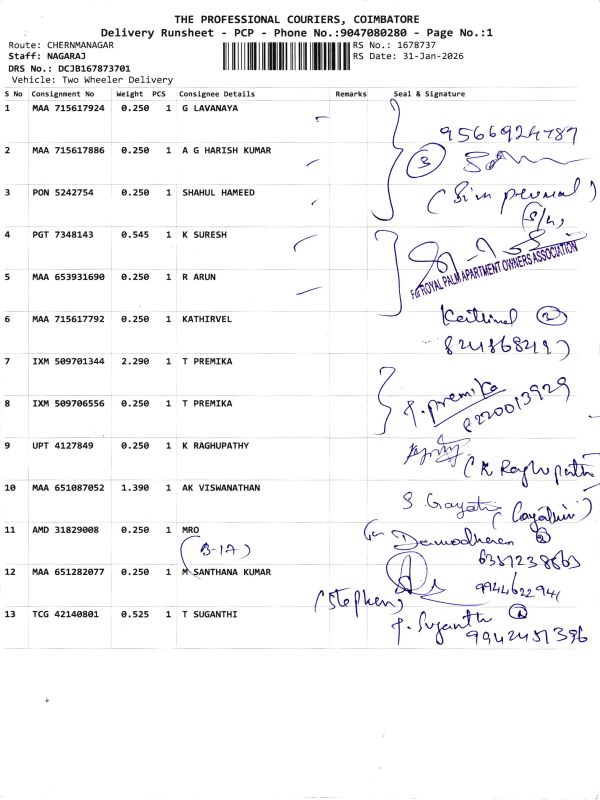 THE PROFESSIONAL COURIERS, COIMBATORE
Delivery Runsheet - PCP - Phone No.:9047080280 - Page No.:1
Route: CHERNMANAGAR
RS No.: 1678737
Staff: NAGARAJ
RS Date: 31-Jan-2026
DRS No.: DCJB167873701
Vehicle: Two Wheeler Delivery
S No Consignment No Weight PCS Consignee Details Remarks Seal & Signature
1 MAA 715617924 0.250 1 G LAVANAYA
9566924787
2 MAA 715617886 0.250 1 A G HARISH KUMAR
3
3 PON 5242754 0.250 1 SHAHUL HAMEED
S/w,
4 PGT 7348143 0.545 1 K SURESH
For ROYAL PALM APARTMENT OWNERS ASSOCIATION
5 MAA 653931690 0.250 1 R ARUN
6 MAA 715617792 0.250 1 KATHIRVEL
2
7 IXM 509701344 2.290 1 T PREMIKA
T. premika
8220013929
8 IXM 509706556 0.250 1 T PREMIKA
9 UPT 4127849 0.250 1 K RAGHUPATHY
(K Raghupathy
10 MAA 651087052 1.390 1 AK VISWANATHAN
S Gayatri
(Gayathiri)
11 AMD 31829008 0.250 1 MRO
(B-1A)
Damodharan
6381238663
12 MAA 651282077 0.250 1 M SANTHANA KUMAR
9944622941
(Stephen)
13 TCG 42140801 0.525 1 T SUGANTHI
T. Suganthi
9942451396